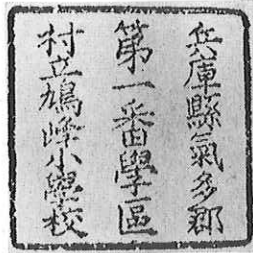 兵庫縣氣多郡
第一番學區
村立鳩峰小學校